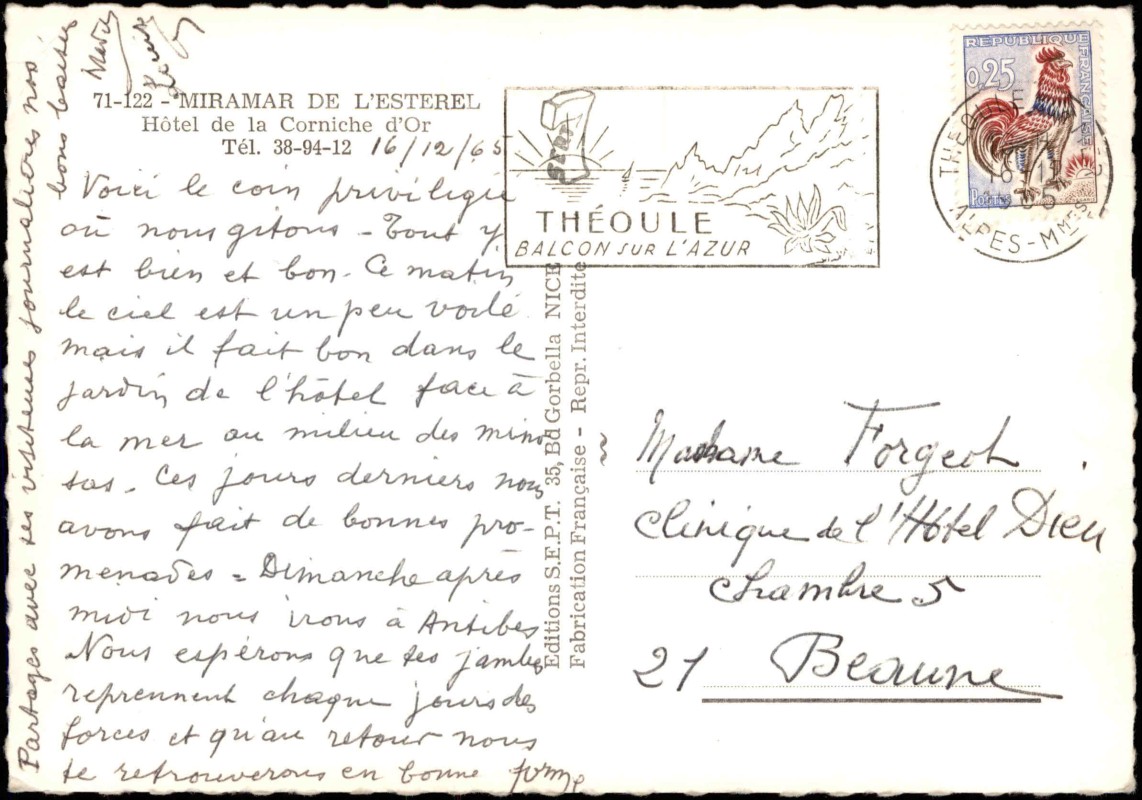 71-122 - MIRAMAR DE L'ESTEREL
Hôtel de la Corniche d'Or
Tél. 38-94-12 16/12/65
Voici le coin privilégié
où nous gitons - Tout y
est bien et bon. Ce matin
le ciel est un peu voilé
mais il fait bon dans le
jardin de l'hôtel face à
la mer au milieu des mimo
sas. Ces jours derniers nous
avons fait de bonnes pro-
menades = Dimanche après
midi nous irons à Antibes
Nous espérons que tes jambes
reprennent chaque jours des
forces et qu'au retour nous
te retrouverons en bonne forme
Partages avec tes visiteuses journalières nos
bons baisers
Editions S.E.P.T. 35, Bd Gorbella NICE
Fabrication Française - Repr. Interdite
SEPT
THÉOULE
BALCON SUR L'AZUR
RÉPUBLIQUE FRANÇAISE
0,25
Postes
ALPES-MMES
Madame Forgeot
Clinique de l'Hôtel Dieu
Chambre 5
21 Beaune